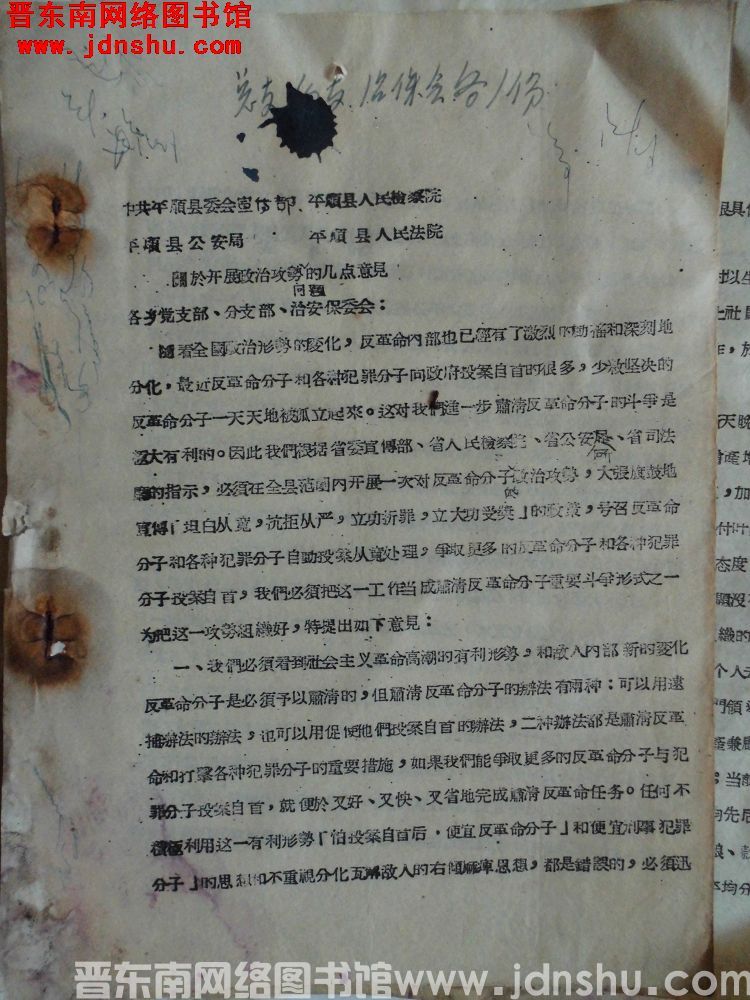 晋东南网络图书馆
www.jdnshu.com
总支、分支、治保会各1份
中共平順县委会宣传部、平順县人民檢察院
平順县公安局 平順县人民法院
關於开展政治攻勢的几点意見
問題
各乡党支部、分支部、治安保委会：
隨着全國政治形勢的变化，反革命內部也已經有了激烈的动搖和深刻地
分化，最近反革命分子和各种犯罪分子向政府投案自首的很多，少数坚决的
反革命分子一天天地被孤立起來。这对我們進一步肅清反革命分子的斗爭是
極大有利的。因此我們根据省委宣傳部、省人民檢察院、省公安局、省司法
廳的指示，必須在全县范圍內开展一次对反革命分子政治攻勢，大張旗鼓地
宣傳「坦白从寬，抗拒从严，立功折罪，立大功受奬」的政策，号召反革命
分子和各种犯罪分子自動投案从寬处理，爭取更多的反革命分子和各种犯罪
分子投案自首，我們必須把这一工作当成肅清反革命分子重要斗爭形式之一
为把这一攻勢組織好，特提出如下意見：
一、我們必須看到社会主义革命高潮的有利形勢，和敌人內部新的变化
反革命分子是必須予以肅清的，但肅清反革命分子的辦法有兩种：可以用逮
捕辦法的辦法，也可以用促使他們投案自首的辦法，二种辦法都是肅清反革
命和打擊各种犯罪分子的重要措施，如果我們能爭取更多的反革命分子与犯
罪分子投案自首，就便於又好、又快、又省地完成肅清反革命任务。任何不
積極利用这一有利形勢「怕投案自首后，便宜反革命分子」和便宜刑事犯罪
分子」的思想和不重視分化瓦解敌人的右傾麻痺思想，都是錯誤的，必須迅
晋东南网络图书馆www.jdnshu.com